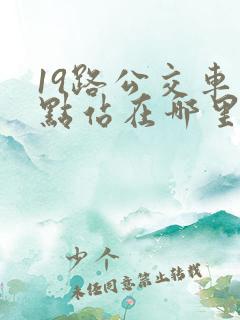 19路公交車
點佔在哪里
少个
未经同意禁止转载